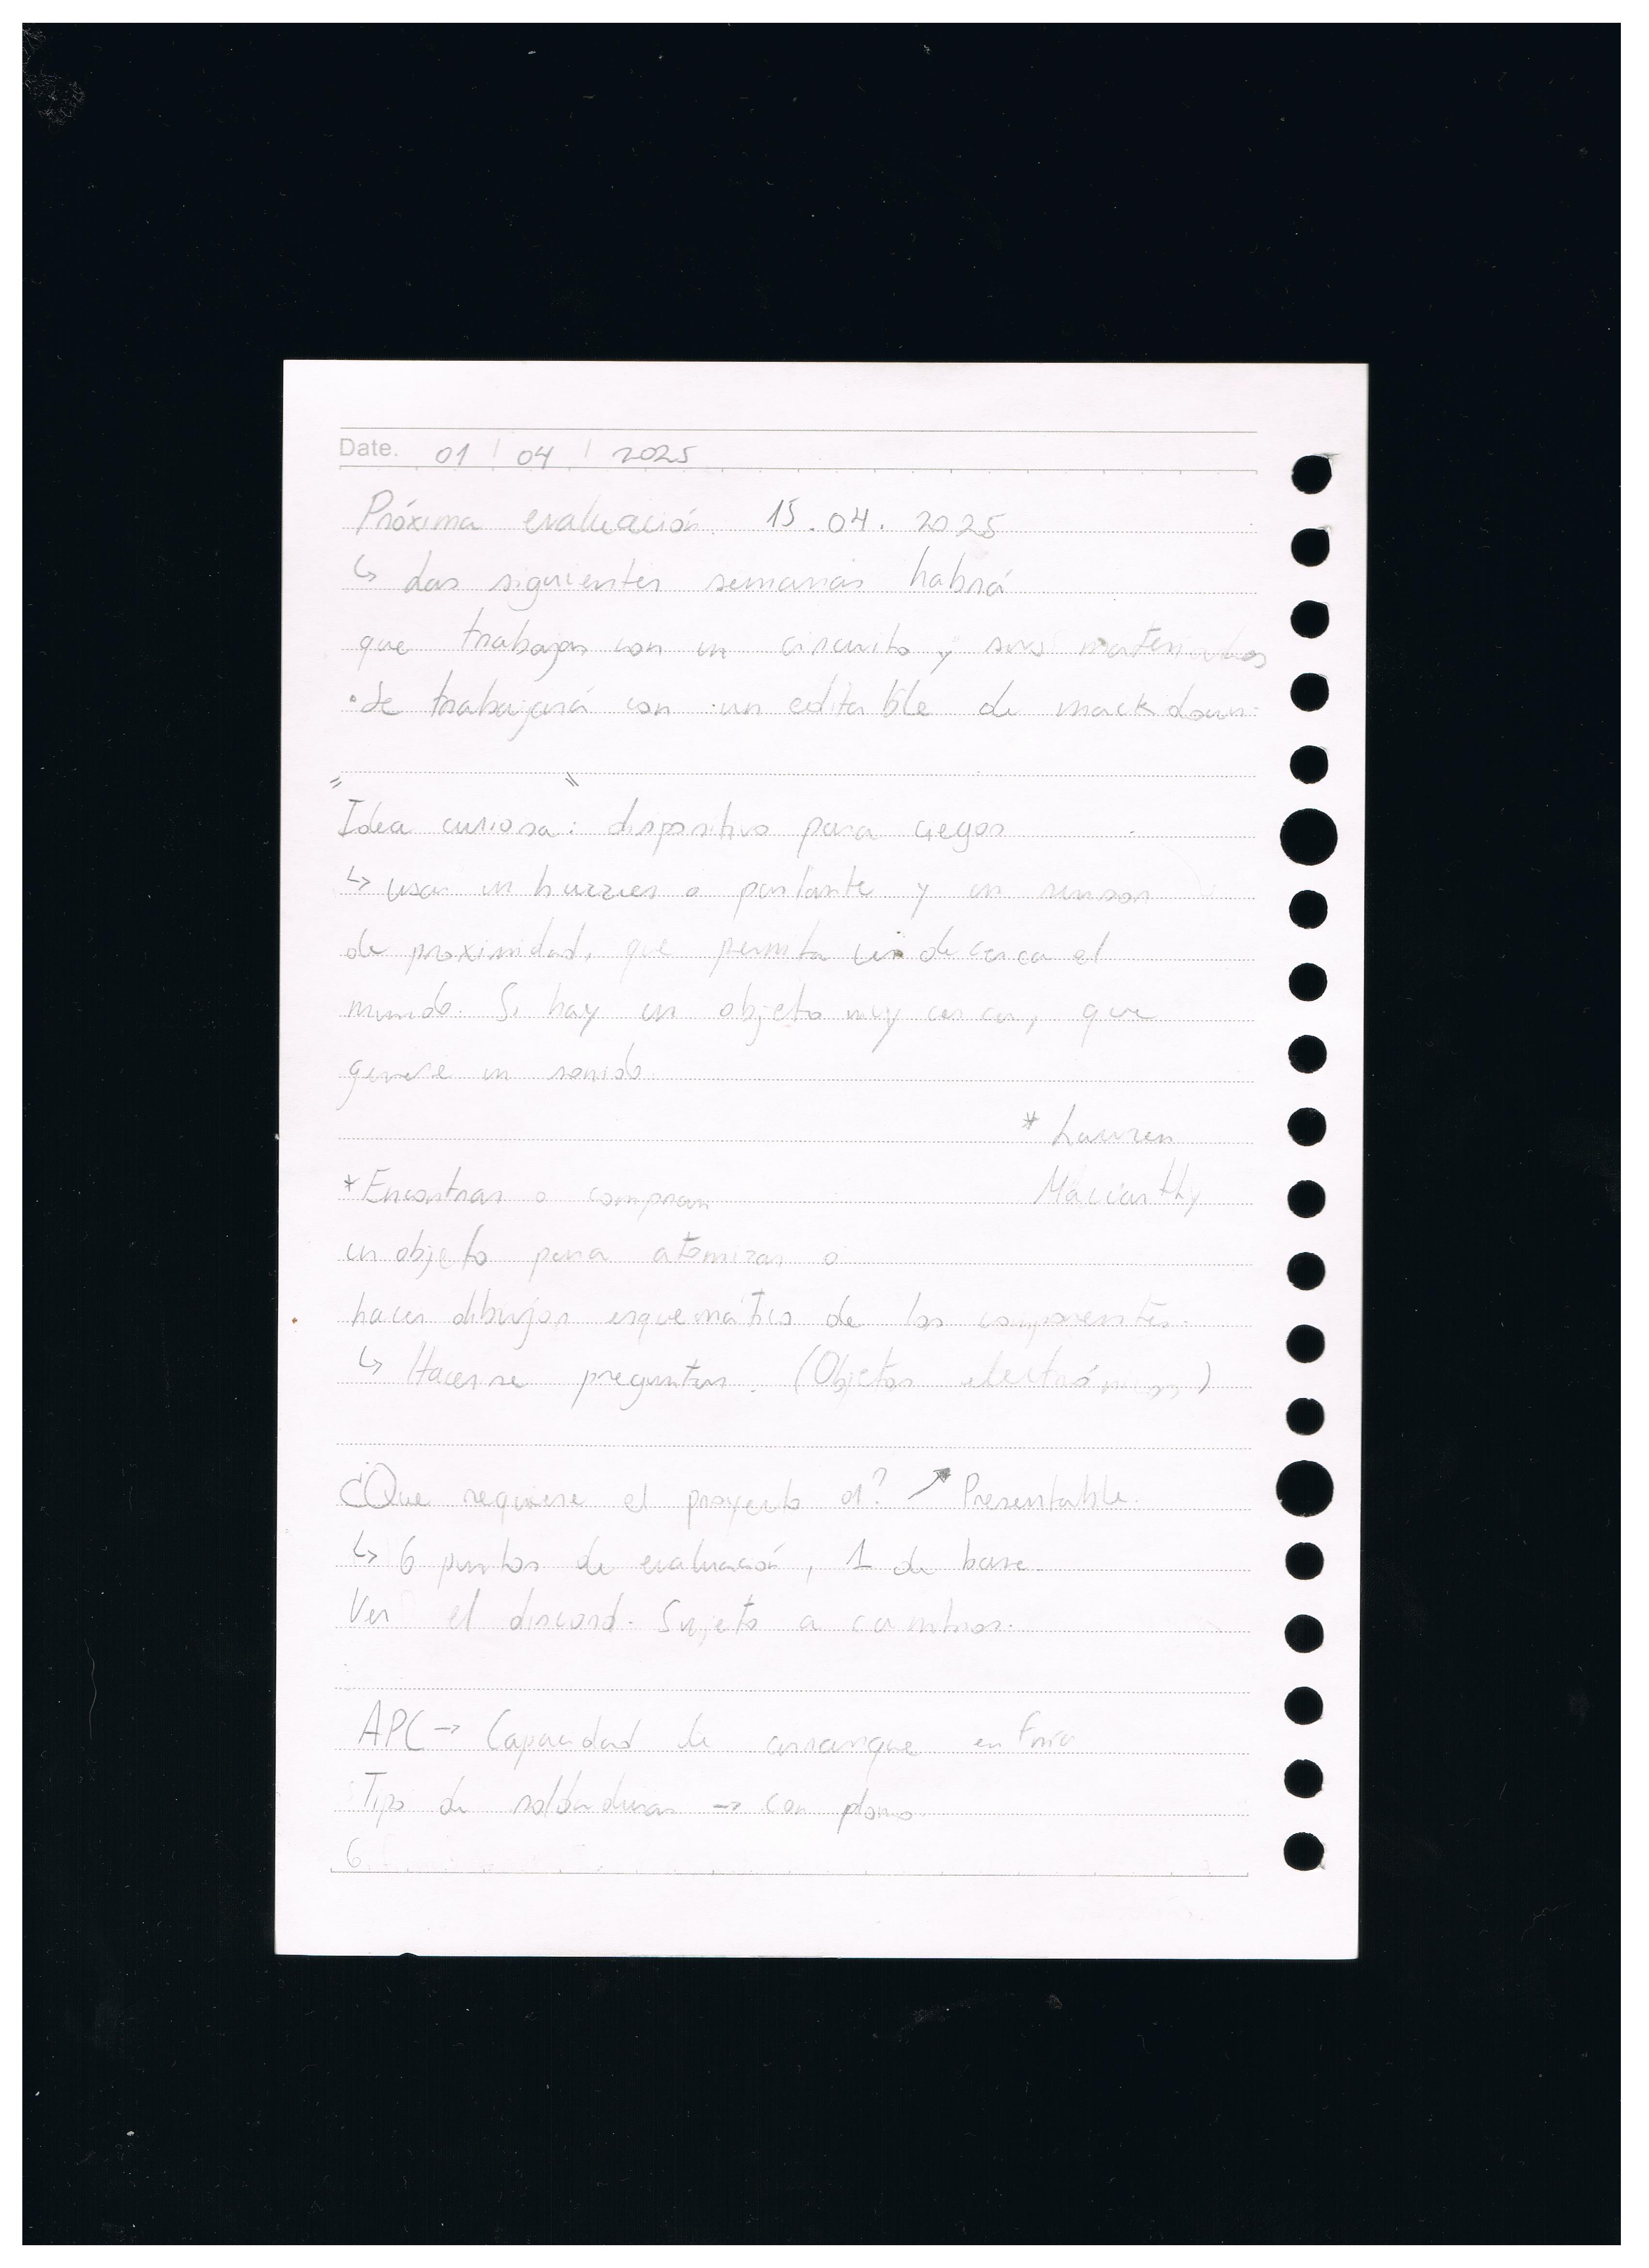 Date. 01 / 04 / 2025
Próxima evaluación 15.04.2025
↳ Las siguientes semanas habrá
que trabajar con un circuito y sus materiales
• Se trabajará con un editable de mackdown.
"Idea curiosa": dispositivo para ciegos
↳ usar un buzzer o parlante y un sensor
de proximidad, que permita ver de cerca el
mundo. Si hay un objeto muy cerca, que
genere un sonido.
* Lauren
Maccarthy
* Encontrar o comprar
un objeto para atomizar o
hacer dibujos esquemático de los componentes.
↳ Hacerse preguntas. (Objetos electrónicos)
¿Que requiere el proyecto 01? ↗ Presentable.
↳ 6 puntos de evaluación, 1 de base.
Ver el discord. Sujeto a cambios.
APC → Capacidad de arranque en frio
Tipo de soldaduras → con plomo.
6